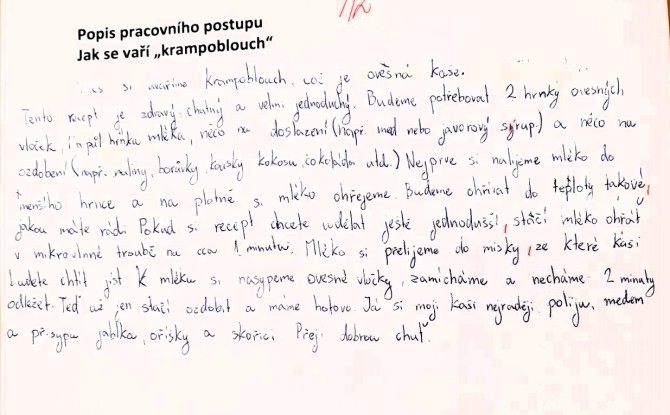 1/2
Popis pracovního postupu
Jak se vaří „krampoblouch“
si uvaříme krampoblouch, což je ovesná kaše.
Tento recept je zdravý, chutný a velmi jednoduchý. Budeme potřebovat 2 hrnky ovesných
vloček, 1 a půl hrnku mléka, něco na doslazení (např. med nebo javorový syrup) a něco na
ozdobení (např. maliny, borůvky, kousky kokosu, čokoládu atd.) Nejprve si nalijeme mléko do
menšího hrnce a na plotně si mléko ohřejeme. Budeme ohřívat do teploty takové,
jakou máte rádi. Pokud si recept chcete udělat ještě jednodušší, stačí mléko ohřát
v mikrovlnné troubě na cca 1 minutu. Mléko si přelijeme do misky, ze které kaši
budete chtít jíst. K mléku si nasypeme ovesné vločky, zamícháme a necháme 2 minuty
odležet. Teď už jen stačí ozdobit a máme hotovo. Já si moji kaši nejraději poliju medem
a přisypu jablka, oříšky a skořici. Přeji dobrou chuť.